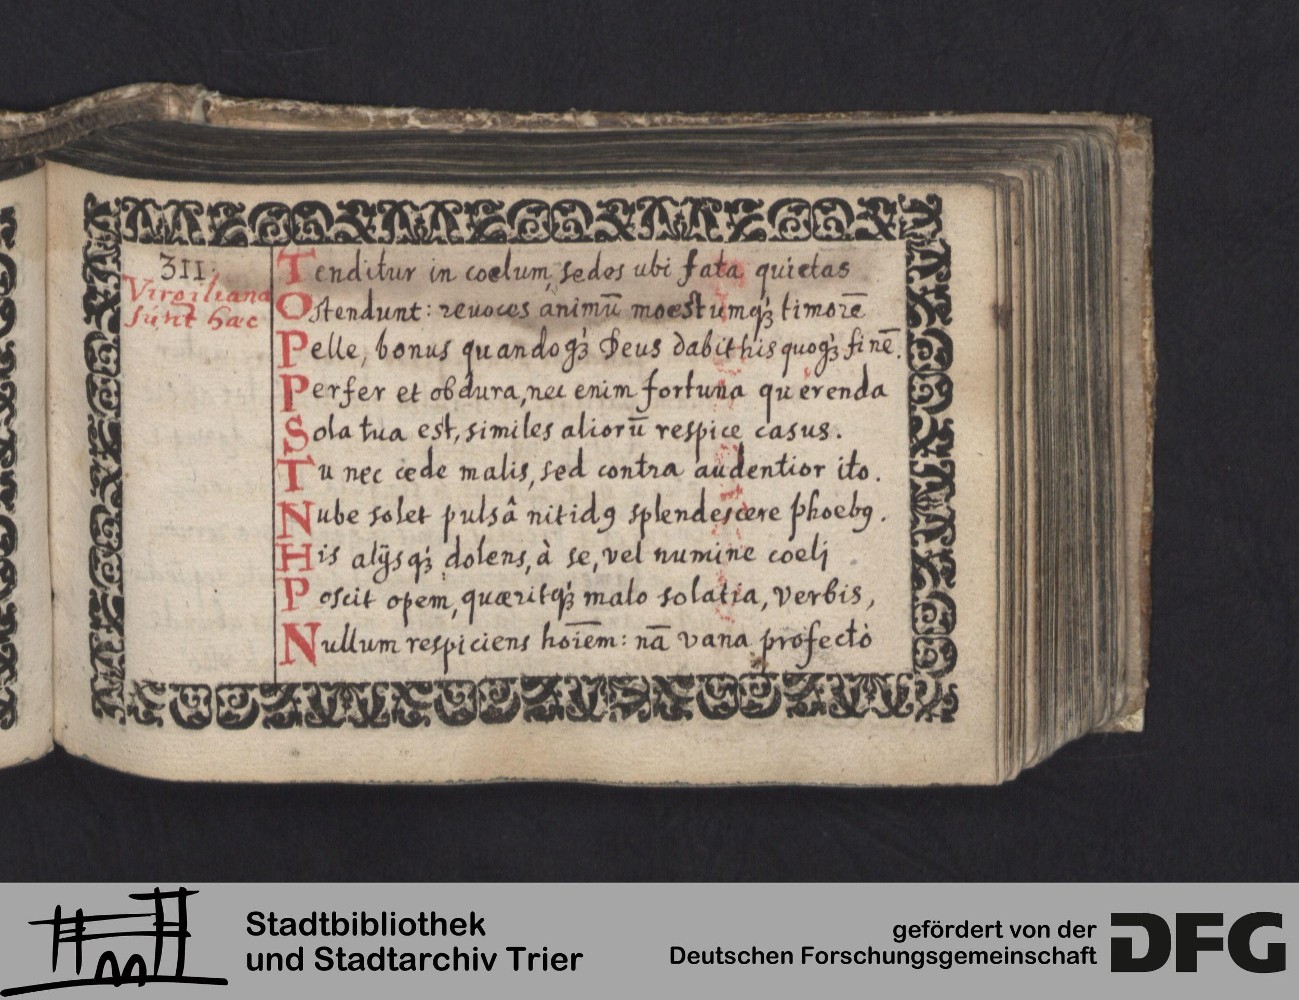 311.
Virgiliana
sunt hæc
Tenditur in coelum, sedes ubi fata quietas
Ostendunt: revoces animū moestumqꝫ timorē
Pelle, bonus quandoqꝫ Deus dabit his quoqꝫ finē.
Perfer et obdura, nec enim fortuna querenda
Sola tua est, similes aliorū respice casus.
Tu nec cede malis, sed contra audentior ito.
Nube solet pulsâ nitidꝰ splendescere phoebꝰ.
His alijsqꝫ dolens, à se, vel numine coeli
Poscit opem, quæritqꝫ malo solatia, verbis,
Nullum respiciens hoīem: nā vana profectò
Stadtbibliothek
und Stadtarchiv Trier
gefördert von der
Deutschen Forschungsgemeinschaft
DFG